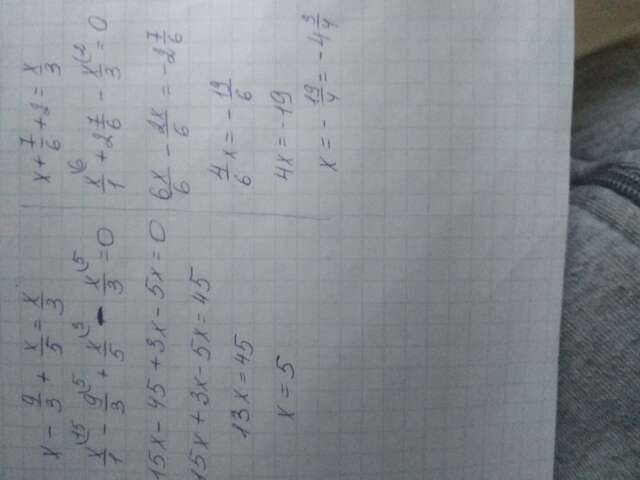 x - 9/3 + x/5 = x/3
x/1 (15 - 9/3 (5 + x/5 (3 - x/3 (5 = 0
15x - 45 + 3x - 5x = 0
15x + 3x - 5x = 45
13x = 45
x = 5
x + 7/6 + 2 = x/3
x/1 (6 + 2 7/6 - x/3 (2 = 0
6x/6 - 2x/6 = -2 7/6
4/6 x = - 19/6
4x = -19
x = - 19/4 = -4 3/4